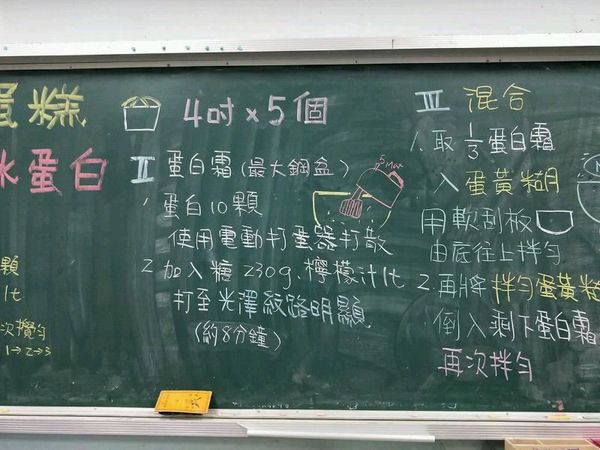 蛋糕 4吋×5個
水蛋白
顆
1t
次攪勻
1→2→3
II 蛋白霜(最大鋼盒)
1. 蛋白10顆
使用電動打蛋器打散
2. 加入糖230g、檸檬汁1t
打至光澤紋路明顯
(約8分鐘)
5 Max
III 混合
1. 取1/3蛋白霜
入蛋黃糊
用軟刮板
由底往上拌勻
2. 再將拌勻蛋黃糊
倒入剩下蛋白霜
再次拌勻